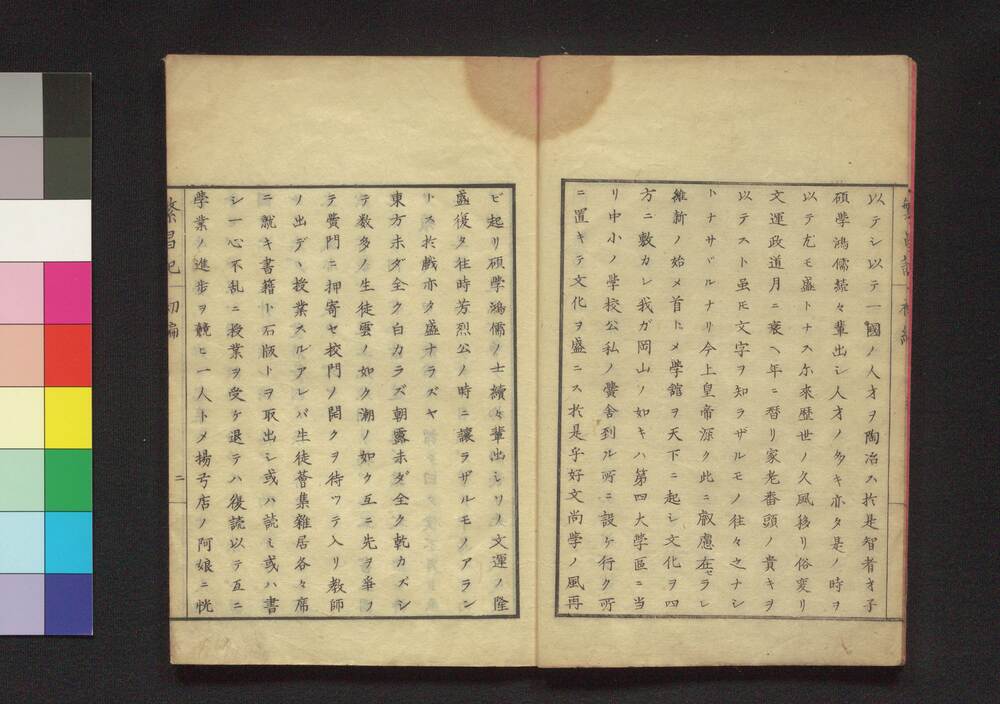 以テシ以テ一國ノ人才ヲ陶冶ス扵是智者才子
碩學鴻儒続々輩出シ人才ノ多キ亦タ是ノ時ヲ
以テ尤モ盛トナス尓來歴世ノ久風移リ俗変リ
文運政道月ニ衰ヘ年ニ替リ家老番頭ノ貴キヲ
以テスト虽モ文字ヲ知ラザルモノ往々之ナシ
トナサヾルナリ今上皇帝源ク此ニ叡慮在ラレ
維新ノ始メ首トメ學館ヲ天下ニ起シ文化ヲ四
方ニ敷カレ我ガ岡山ノ如キハ第四大學區ニ当
リ中小ノ學校公私ノ黌舎到ル所ニ設ケ行ク所
ニ置キテ文化ヲ盛ニス扵是乎好文尚學ノ風再
ビ起リ碩學鴻儒ノ士續々輩出シリノ文運ノ隆
盛復タ往時芳烈公ノ時ニ讓ラザルモノアラン
トス扵戲亦タ盛ナラズヤ
東方未ダ全ク白カラズ朝露未ダ全ク乾カズシ
テ数多ノ生徒雲ノ如ク潮ノ如ク互ニ先ヲ爭ノ
テ黌門ニ押寄セ校門ノ開クヲ待ツテ入リ教師
ノ出デヽ授業スルアレバ生徒薈集雜居各々席
ニ就キ書籍ト石版トヲ取出シ或ハ読ミ或ハ書
シ一心不乱ニ授業ヲ受ケ退テハ復読以テ互ニ
學業ノ進歩ヲ競ヒ一人トメ揚弓店ノ阿娘ニ恍
繁昌記 初編 二